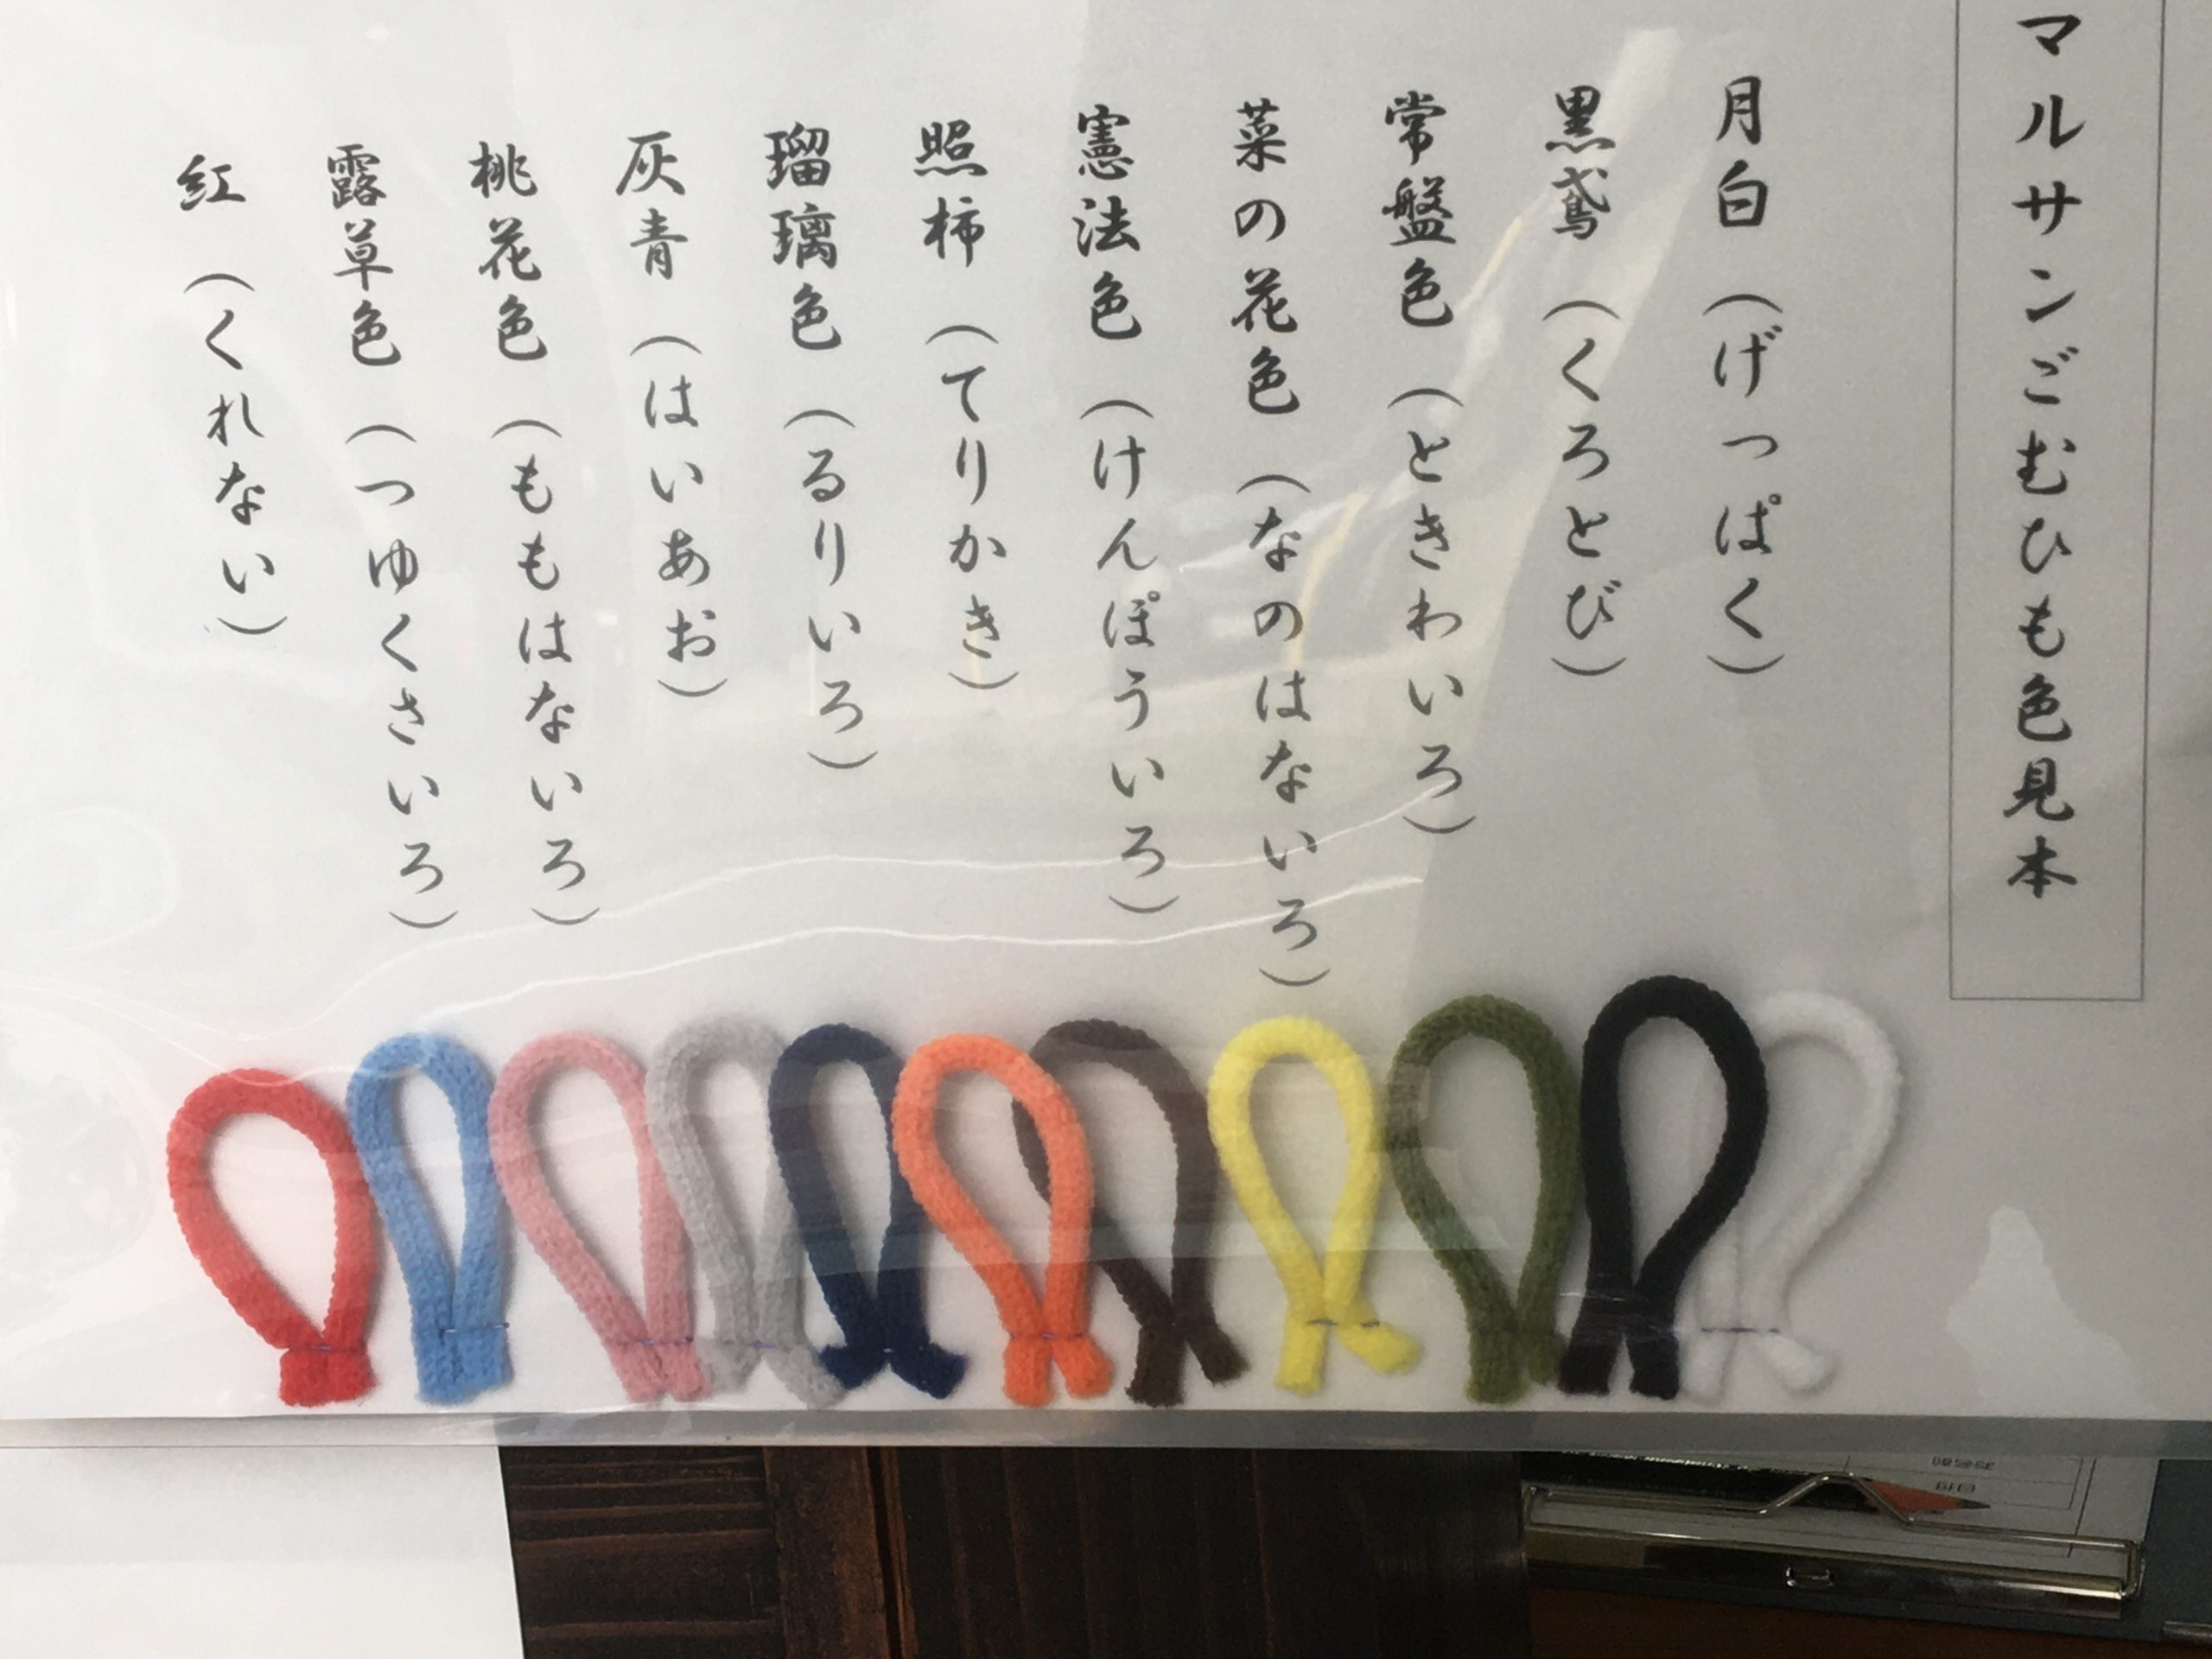 マルサンごむひも色見本
月白（げっぱく）
黒鳶（くろとび）
常盤色（ときわいろ）
菜の花色（なのはないろ）
憲法色（けんぽういろ）
照柿（てりかき）
瑠璃色（るりいろ）
灰青（はいあお）
桃花色（ももはないろ）
露草色（つゆくさいろ）
紅（くれない）